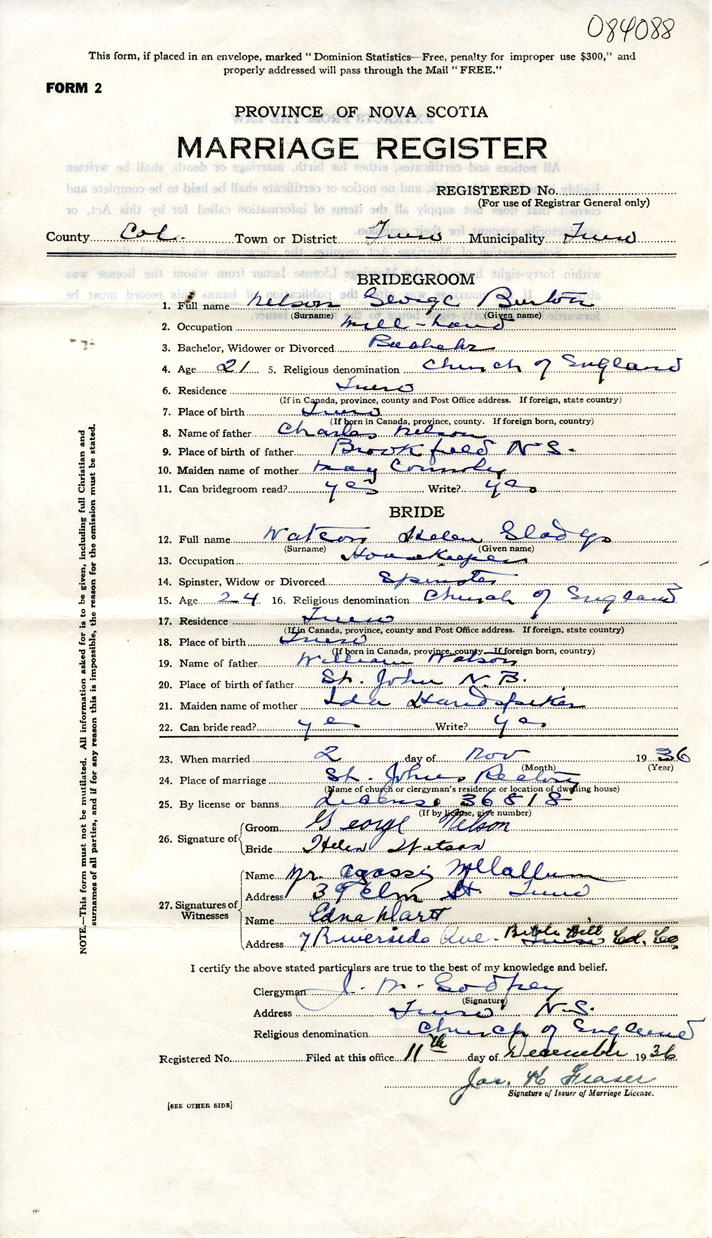 084088
This form, if placed in an envelope, marked "Dominion Statistics—Free, penalty for improper use $300," and
properly addressed will pass through the Mail "FREE."
FORM 2
PROVINCE OF NOVA SCOTIA
MARRIAGE REGISTER
REGISTERED No.
(For use of Registrar General only)
County Col. Town or District Truro Municipality Truro
BRIDEGROOM
1. Full name Nelson George Burton
(Surname) (Given name)
2. Occupation Mill-hand
3. Bachelor, Widower or Divorced Bachelor
4. Age 21 5. Religious denomination Church of England
6. Residence Truro
(If in Canada, province, county and Post Office address. If foreign, state country)
7. Place of birth Truro
(If born in Canada, province, county. If foreign born, country)
8. Name of father Charles Nelson
9. Place of birth of father Brookfield N.S.
10. Maiden name of mother May Connoly
11. Can bridegroom read? yes Write? yes
BRIDE
12. Full name Watson Helen Gladys
(Surname) (Given name)
13. Occupation Housekeeper
14. Spinster, Widow or Divorced Spinster
15. Age 24 16. Religious denomination Church of England
17. Residence Truro
(If in Canada, province, county and Post Office address. If foreign, state country)
18. Place of birth Truro
(If born in Canada, province, county. If foreign born, country)
19. Name of father William Watson
20. Place of birth of father St. John N.B.
21. Maiden name of mother Ida
22. Can bride read? yes Write? yes
23. When married 2 day of Nov 1936
(Month) (Year)
24. Place of marriage St. Johns
(Name of church or clergyman's residence or location of dwelling house)
25. By license or banns License 36818
(If by license, give number)
26. Signature of Groom George Nelson
Bride Helen Watson
27. Signatures of Witnesses
Name Mr. McCallum
Address 39 Elm St. Truro
Name Edna
Address 7 Riverside Ave. Bible Hill Truro Col. Co.
I certify the above stated particulars are true to the best of my knowledge and belief.
Clergyman J. M.
(Signature)
Address Truro N.S.
Religious denomination Church of England
Registered No. Filed at this office 11th day of December 1936
Jas. K Fraser
Signature of Issuer of Marriage License.
[SEE OTHER SIDE]
NOTE.—This form must not be mutilated. All information asked for is to be given, including full Christian and
surnames of all parties, and if for any reason this is impossible, the reason for the omission must be stated.